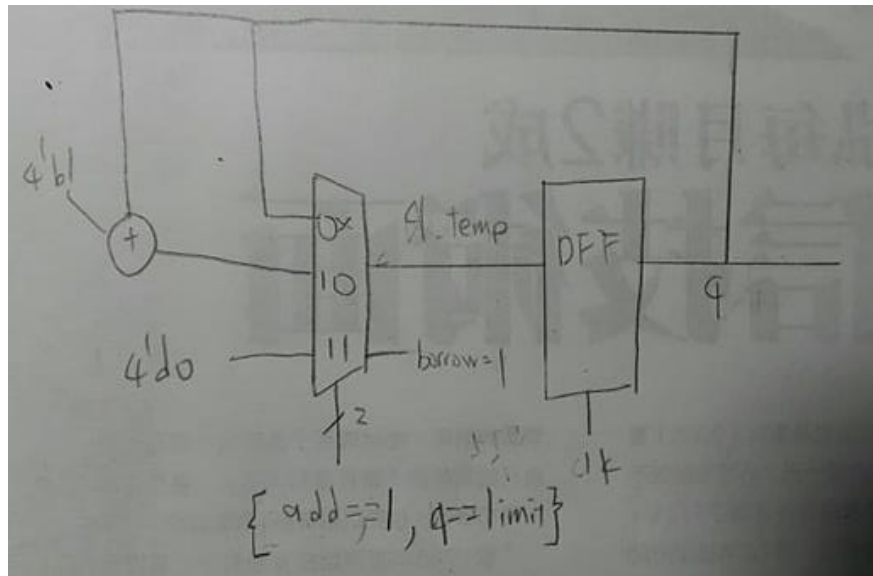 4'b1
+
0x
10
11
q_temp
DFF
q
4'd0
borrow=1
2
clk
{add==1, q==limit}